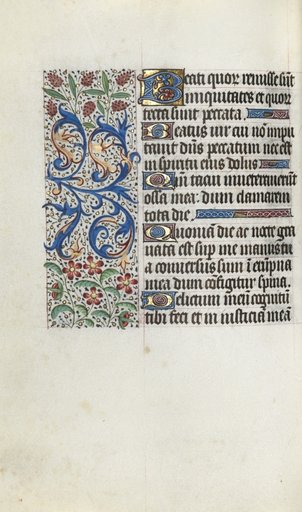 Beati quor remisse sūt
iniquitates et quor
tecta sunt peccata
Beatus uir cui nō impu
tauit dn̄s peccatum nec est
in spiritu eius dolus
Qm̄ tacui inueterauerūt
ossa mea dum clamarem
tota die
Quoniā die ac nocte gra
uata est sup me manus tua
conuersus sum ī erūpna
mea dum cōfigitur spina
Delictum meū cognitū
tibi feci et in iusticiam meā